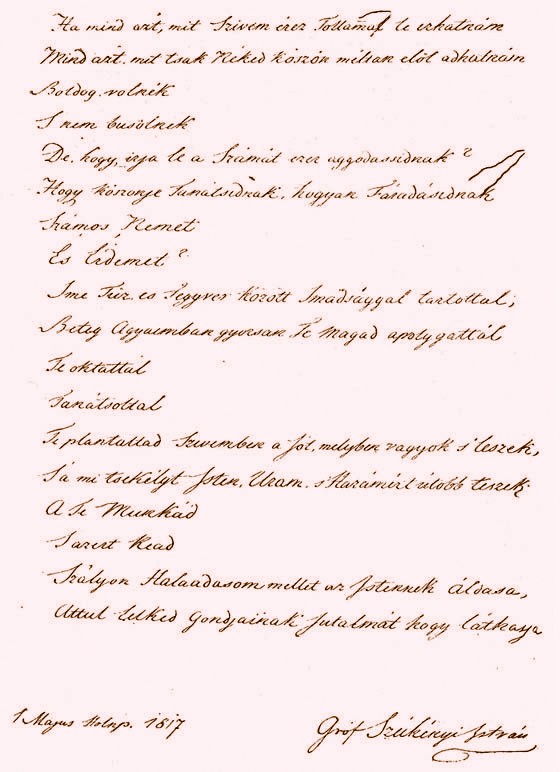 Ha mind azt, mit Szivem érez Tollamal le irhatnám
Mind azt, mit tsak Néked köszön méltan elöl adhatnám
Boldog volnék
S nem busolnek
De hogy irja le a Számát ezer aggodassidnak?
Hogy köszönje Tanátsidnak, hogyan Fáradásidnak
Számos Nemet
És Érdemet?
Ime Tüz es Fegyver között Imadsággal tartottal;
Beteg Agyaemban gyorsan Te Magad apolygattál
Te oktattál
Tanátsoltal
Te plantattad Szivemben a Jót, melyben vagyok s' leszek,
S a mi tsekélyt Isten, Uram, s' Hazámért utobb teszek
A Te Munkád
S azert Read
Szályon Halaadasom mellet az Istennek Áldasa,
Attul lelked Gondjainak Jutalmát hogy láthassa
1 Majus 1817
Gróf Széchényi István